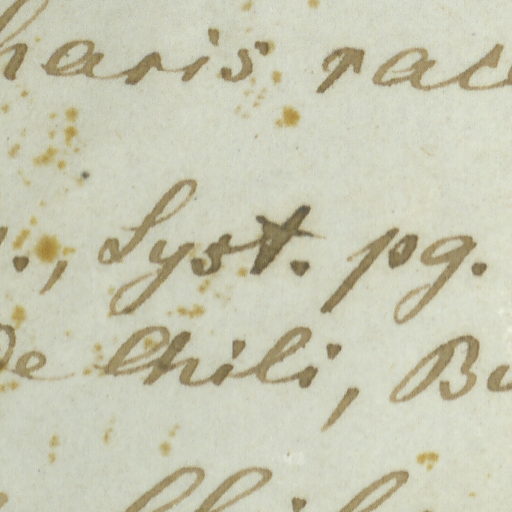 haris rac
., Syst. pg.
de Chili, Bu